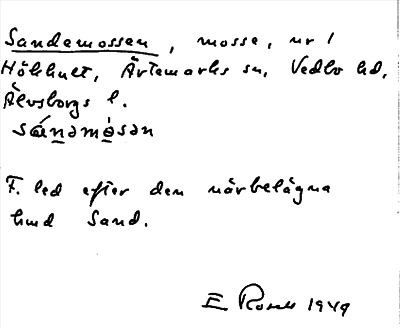 Sandemossen, mosse, nr 1
Hökhult, Ärtemarks sn, Vedbo hd,
Älvsborgs l.
sánəmòsən
F. led efter den närbelägna
hmd Sand.
E 1949